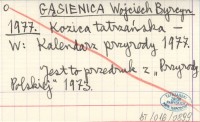 GĄSIENICA Wojciech Byrcyn
1977. Kozica tatrzańska –
W: Kalendarz przyrody 1977.
Jest to przedruk z „Przyrody
Polskiej" 1973.
bt/016/0899